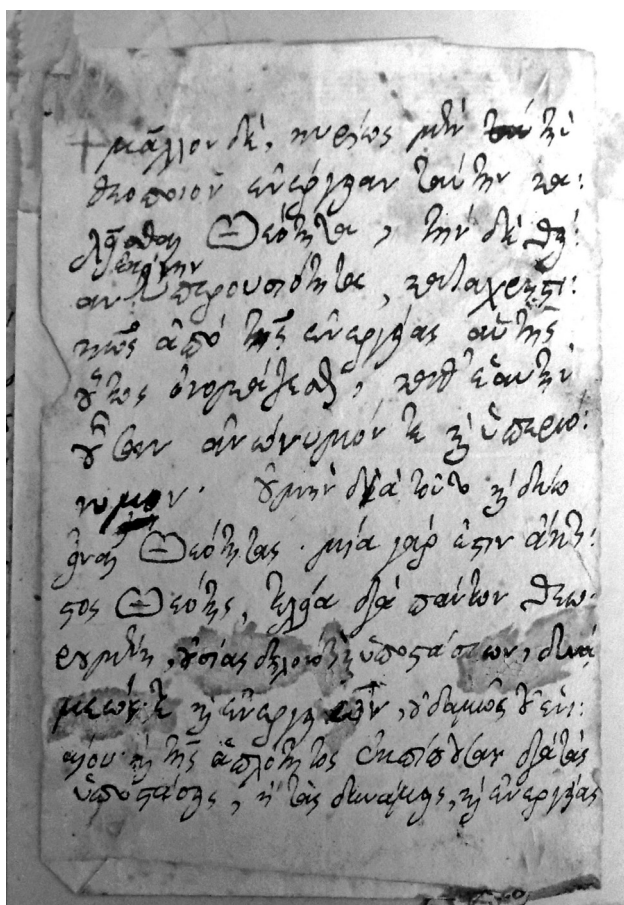 μᾶλλον δὲ, κυρίως μὲν τὴν
θεοποιὸν ἐνέργειαν ταύτην κα:
λεῖσθαι Θεότητα, τὴν δὲ θεί:
αν ἐκείνην ὑπερουσιότητα, καταχρηστι:
κῶς ἀπό τῆς ἐνεργείας αὐτῆς
οὕτως ὀνομάζεσθαι, καθ' ἑαυτὴν
οὖσαν ἀνώνυμόν τε καὶ ὑπερώ:
νυμον. οὐ μὴν διὰ τοῦτο καὶ δύο
εἶναι Θεότητας. μία γάρ ἐστιν ἄκτι:
στος Θεότης, τελεία διὰ πάντων θεω:
ρουμένη, οὐσίας δηλονότι καὶ ὑποστάσεων, δυνά
μεών τε καὶ ἐνεργειῶν, οὐδαμῶς τοῦ ἑνι:
αίου καὶ τῆς ἁπλότητος ἐκπίπτουσαν διὰ τὰς
ὑποστάσεις, ἢ τὰς δυνάμεις, καὶ ἐνεργείας